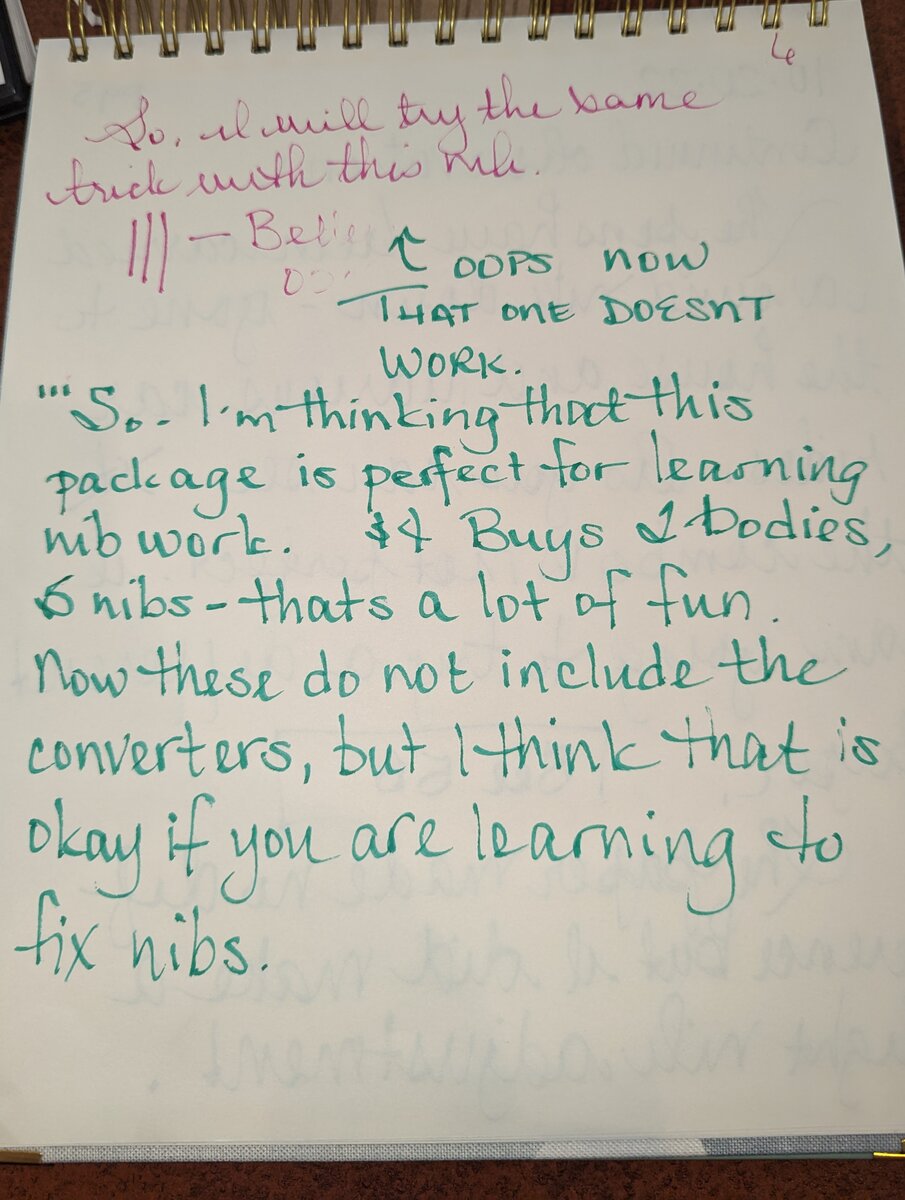 So, I will try the same
trick with this nib.
||| — Beli
↑ OOPS NOW
THAT ONE DOESNT
WORK.
"' So.. I'm thinking that this
package is perfect for learning
nib work. $4 Buys 2 bodies,
6 nibs - thats a lot of fun.
Now these do not include the
converters, but I think that is
okay if you are learning to
fix nibs.